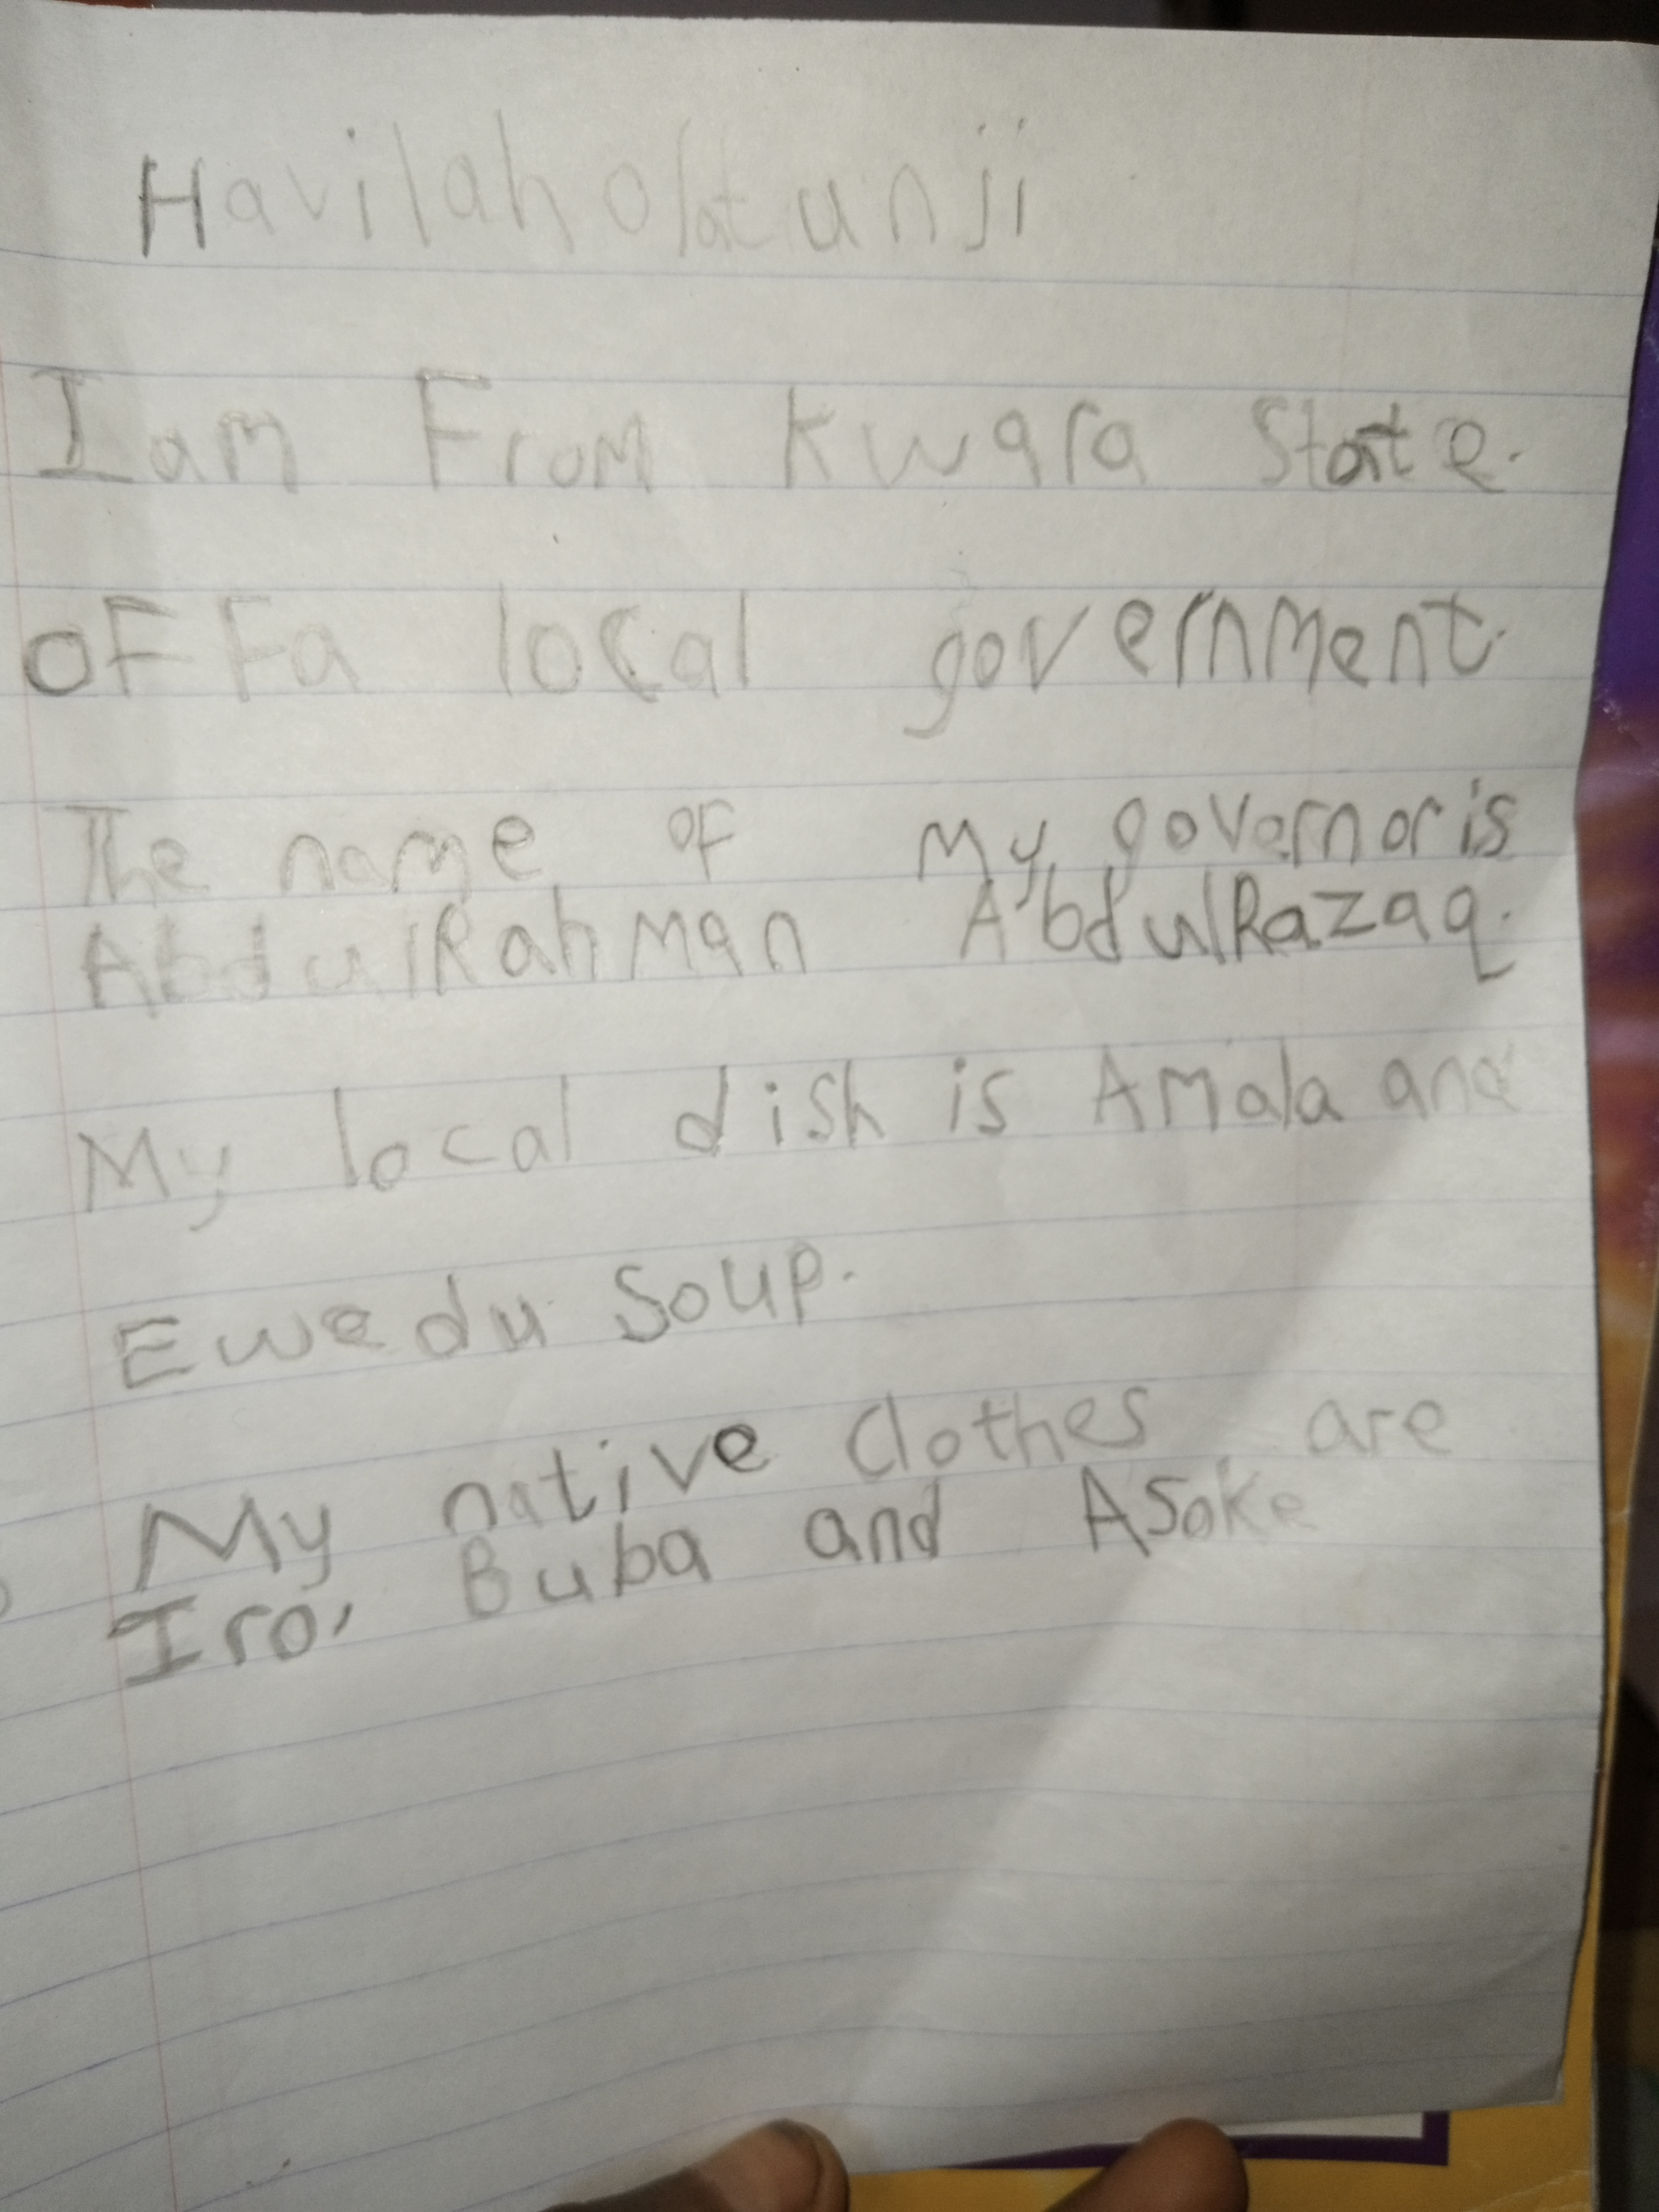 Havilah Olatunji
I am From Kwara State.
OFFa local government.
The name of My governor is
AbdulRahman AbdulRazaq.
My local dish is Amala and
Ewedu Soup.
My native Clothes are
Iro, Buba and Asoke